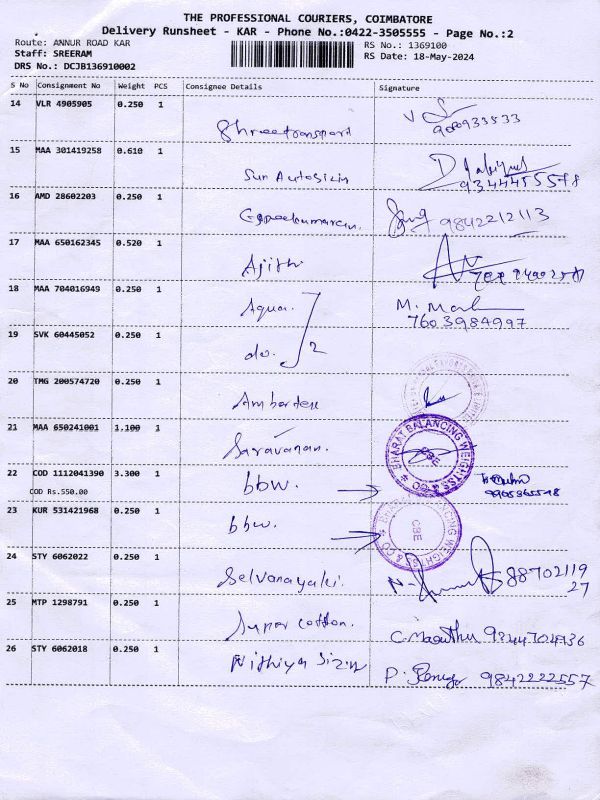 THE PROFESSIONAL COURIERS, COIMBATORE
Delivery Runsheet - KAR - Phone No.:0422-3505555 - Page No.:2
Route: ANNUR ROAD KAR RS No.: 1369100
Staff: SREERAM RS Date: 18-May-2024
DRS No.: DCJB136910002
S No Consignment No Weight PCS Consignee Details Signature
14 VLR 4905905 0.250 1
Shreetransport
15 MAA 301419258 0.610 1
Sun Autosizin 9344455578
16 AMD 28602203 0.250 1
9842212113
17 MAA 650162345 0.520 1
Ajithi
18 MAA 704016949 0.250 1
Aqua. M.
7603984997
19 SVK 60445052 0.250 1
do. 2
20 TMG 200574720 0.250 1
21 MAA 650241001 1.100 1
Saravanan. BHARAT BALANCING WEIGHTSS & CO CBE
22 COD 1112041390 3.300 1
COD Rs.550.00
bbw.
23 KUR 531421968 0.250 1
bbw. CBE
24 STY 6062022 0.250 1
Selvanayaki. 88702119
27
25 MTP 1298791 0.250 1
Super cotton.
26 STY 6062018 0.250 1
Nithiya Sizin P. 9842222557